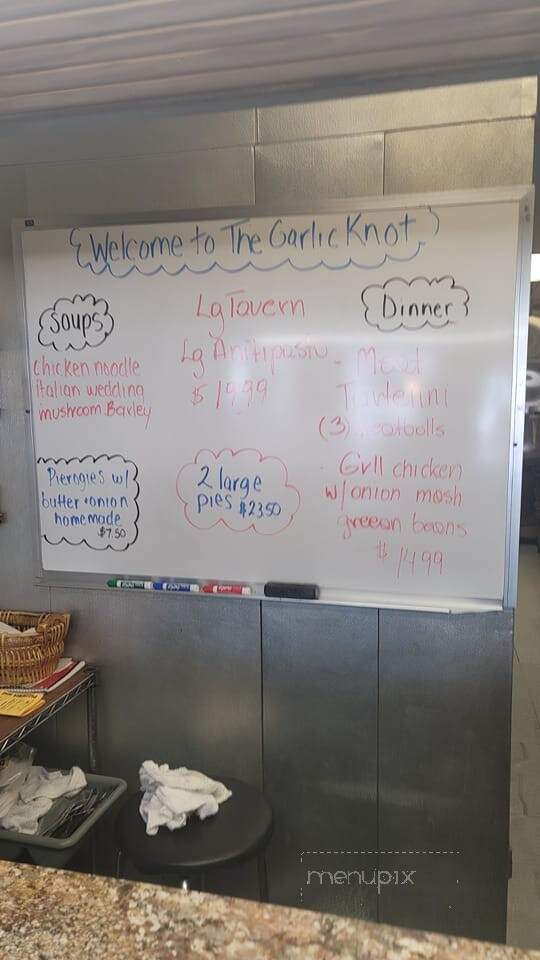 Welcome to The Garlic Knot
Soups
Chicken noodle
italian wedding
mushroom Barley
Pierogies w/
butter + onion
homemade
$7.50
Lg Tavern
Lg Anitipasto
$19.99
2 large
pies $23.50
Dinner
- Meat
Tortelini
(3) meatballs
- Grll chicken
w/onion mash
greeen beans
$14.99
menupix